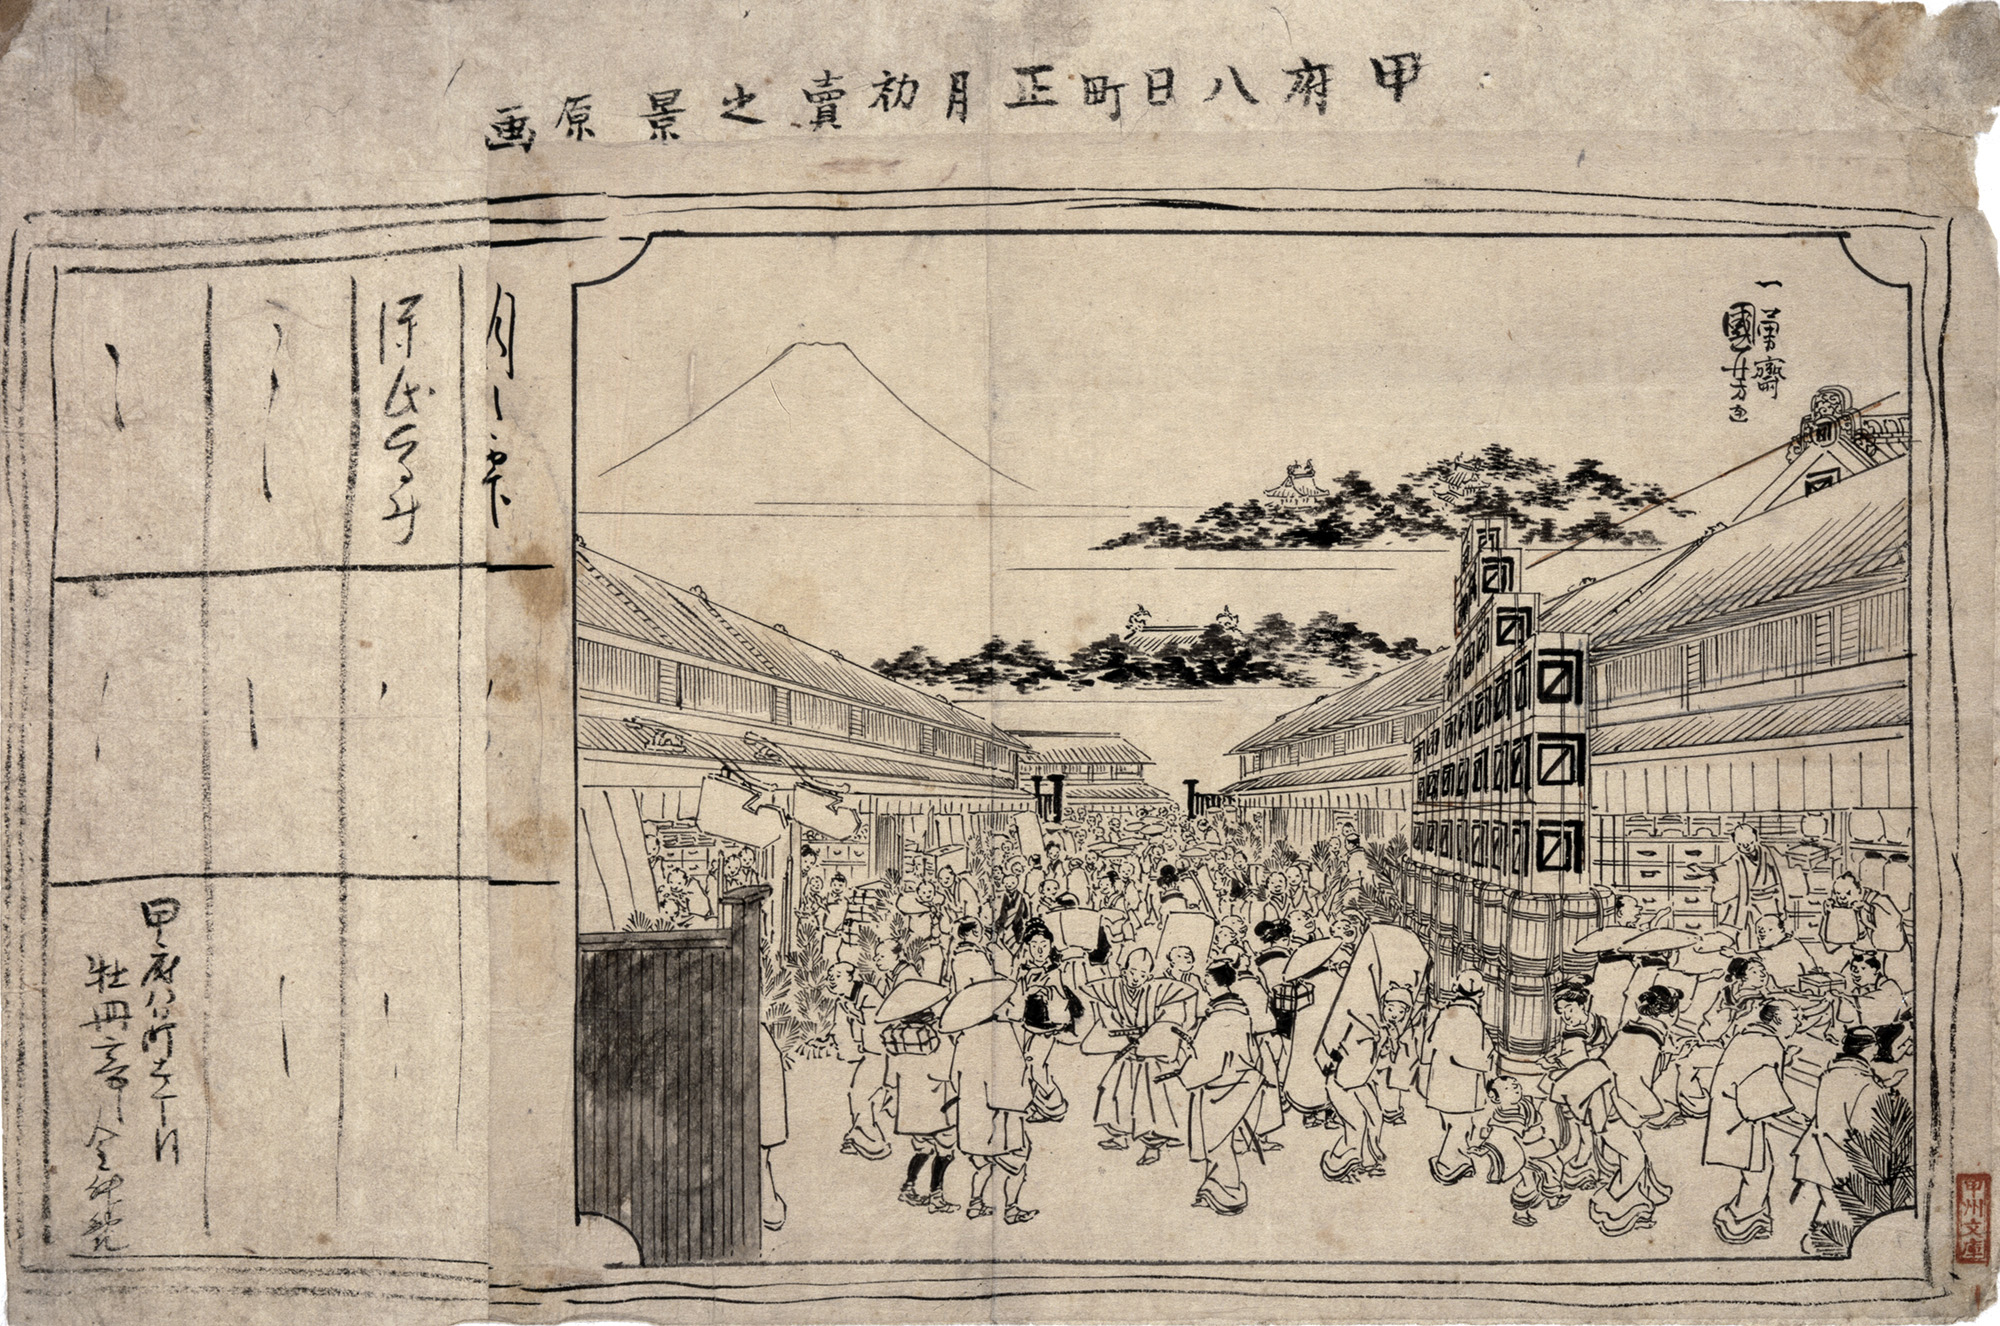 甲府八日町正月初賣之景原画
一勇齋
國芳画
月の雫
甲府八日町壱丁目
牡丹亭金升製
甲州文庫